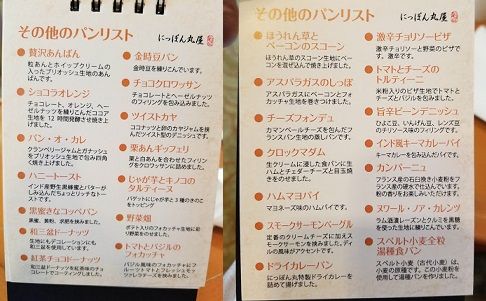 その他のパンリスト
にっぽん丸屋
贅沢あんぱん
粒あんとホイップクリームの
入ったブリオッシュ生地のあ
んぱんです。
ショコラオレンジ
チョコレート、オレンジ、ヘー
ゼルナッツを練りこんだココア
生地を12時間発酵させ焼き上
げました。
パン・オ・カレ
クランベリージャムとガナッシュ
をブリオッシュ生地で包み四角
く焼き上げました。
ハニートースト
インド産野生黒蜂蜜とバターが
しみこんだちょとリッチなトー
ストです。
黒蜜きなコッペパン
黒蜜、黄粉、求肥を挟みました。
和三盆ドーナーツ
生地にもデコレーションにも
和三盆を使用しています。
紅茶チョコドーナーツ
アールグレイドーナーツを紅茶味のチョ
コレートでコーティングしました。
金時豆パン
金時豆を練りこんでいます。
チョコクロワッサン
チョコレートとヘーゼルナッツ
のフィリングを包み込みました。
ツイストカヤ
ココナッツと卵のカヤジャムを挟ん
だツイスト型のデニッシュです。
栗あんギッフェリ
栗と白あんを合わせたフィリン
グをクロワッサンに包みました。
じゃが芋とキノコの
タルティーヌ
バゲットにじゃが芋と3種のきのこ
をトッピング
野菜畑
ポテト入りのフォカッチャ生地に彩
り野菜をのせました。
トマトとバジルの
フォカッチャ
バジル風味のフォカッチャにフ
ルーツトマトとフレッシュモッ
ツァレラチーズを挟みました。
その他のパンリスト
にっぽん丸屋
ほうれん草と
ベーコンのスコーン
ほうれん草のスコーン生地にベーコ
ンを混ぜ込んで焼き上げました。
アスパラガスのしっぽ
アスパラガスにベーコンとフォ
カッチャ生地を巻きました。
チーズフォンデュ
カマンベールチーズを包んだフ
ランスパン生地の蒸しパンです。
クロックマダム
生クリームに浸した食パンに生
ハムとチェダーチーズと目玉焼
きをのせて焼きました。
ハムマヨパイ
マヨネーズ味のハムパイです。
スモークサーモンベーグル
定番のクリームチーズに加えス
モークサーモンを挟みました。ディ
ルの風味がアクセントです。
ドライカレーパン
にっぽん丸特製ドライカレーを
詰めて揚げました。
激辛チョリソーピザ
激辛チョリソーと野菜のピザで
す。激辛です。
トマトとチーズの
トルティーニ
米粉入りのピザ生地でトマト
とチーズとバジルを包みました。
旨辛ビーンデニッシュ
ひよこ豆、いんげん豆、レンズ豆
のチリソース味のフィリングです。
インド風キーマカレーパイ
キーマカレーを包み込んだパイです。
カンパーニュ
フランス産の石臼挽き小麦粉を
フランスの硬水で仕込んでいます。
粉の香りをお楽しみいただけます。
ヌワール・ノア・カレンツ
ラム酒漬レーズンとクルミを黒糖
を使った生地に練りこんでいます。
スペルト小麦全粒
湯種食パン
スペルト小麦（古代小麦）は、
小麦の原種です。この小麦粉を
使用して湯種パンを作りました。